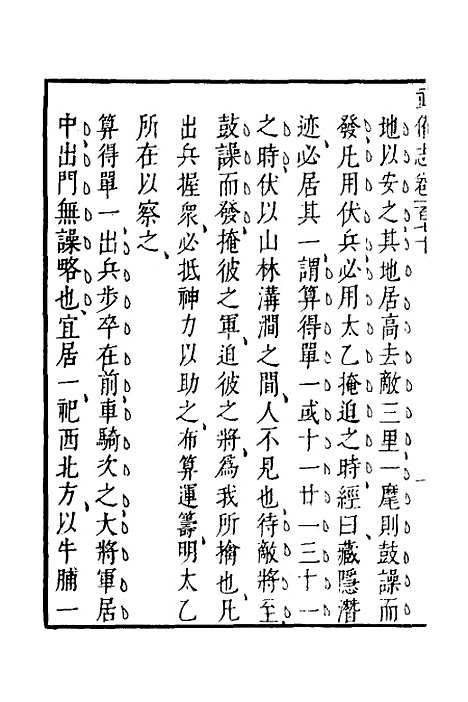 武備志卷一百七十
地以安之其地居高去敵三里一麾則鼓譟而
發凡用伏兵必用太乙掩迫之時經曰藏隱潛
迹必居其一謂算得單一或十一廿一三十一
之時伏以山林溝澗之間人不見也待敵將至
鼓譟而發掩彼之軍迫彼之將為我所擒也凡
出兵握衆必抵神力以助之布算運籌明太乙
所在以察之
算得單一出兵步卒在前車騎次之大將軍居
中出門無譟略也宜居一祀西北方以牛脯一